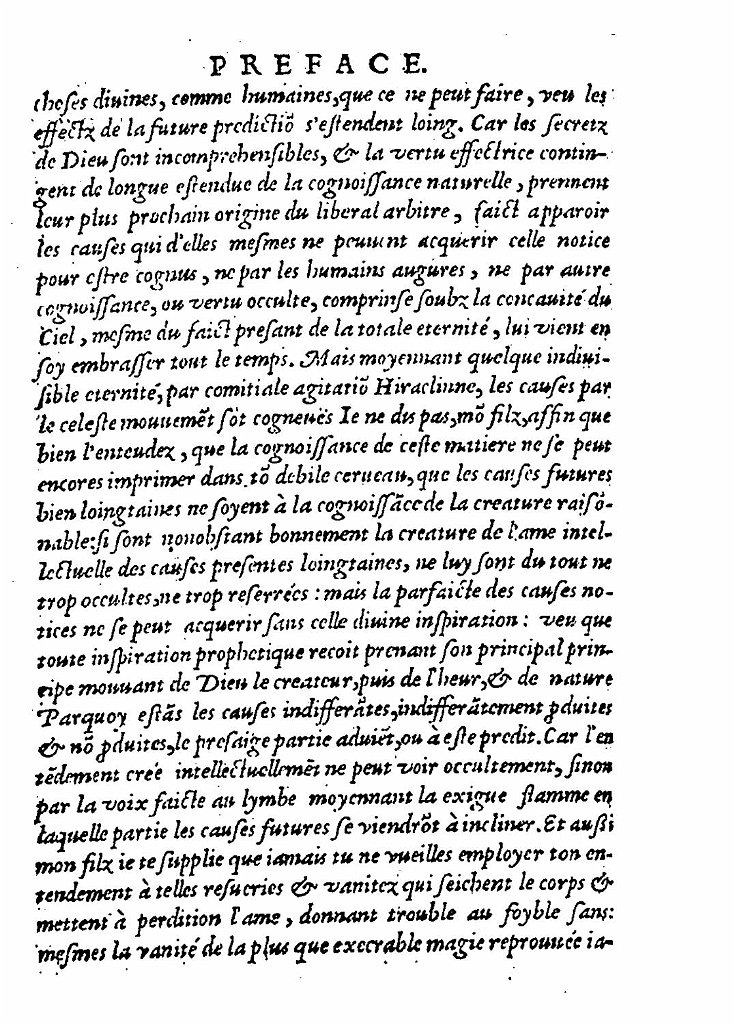 PREFACE.
choses diuines, comme humaines, que ce ne peut faire, veu les
effectz de la future predictiõ s'estendent loing. Car les secretz
de Dieu sont incomprehensibles, & la vertu effectrice contin-
gent de longue estendue de la cognoissance naturelle, prennent
leur plus prochain origine du liberal arbitre, faict apparoir
les causes qui d'elles mesmes ne peuuent acquerir celle notice
pour estre cognus, ne par les humains augures, ne par autre
cognoissance, ou vertu occulte, comprinse soubz la concauité du
Ciel, mesme du faict presant de la totale eternité, lui vient en
soy embrasser tout le temps. Mais moyennant quelque indiui-
sible eternité, par comitiale agitatiõ Hiraclinne, les causes par
le celeste mouuemẽt sõt cogneues Ie ne dis pas, mõ filz, affin que
bien l'entendez, que la cognoissance de ceste matiere ne se peut
encores imprimer dans tõ debile cerueau, que les causes futures
bien loingtaines ne soyent à la cognoissãce de la creature raisõ-
nable: si sont nonobstant bonnement la creature de l'ame intel-
lectuelle des causes presentes loingtaines, ne luy sont du tout ne
trop occultes, ne trop reserrées: mais la parfaicte des causes no-
tices ne se peut acquerir sans celle diuine inspiration: veu que
toute inspiration prophetique recoit prenant son principal prin-
cipe mouuant de Dieu le createur, puis de l'heur, & de nature
Parquoy estãs les causes indifferãtes, indifferãtement ꝓduites
& nõ ꝓduites, le presaige partie aduiẽt, ou à este predit. Car l'en
tẽdement creé intellectuellemẽt ne peut voir occultement, sinon
par la voix faicte au lymbe moyennant la exigue flamme en
laquelle partie les causes futures se viendrõt à incliner. Et aussi
mon filz ie te supplie que iamais tu ne vueilles employer ton en-
tendement à telles resueries & vanitez qui seichent le corps &
mettent à perdition l'ame, donnant trouble au foyble sans:
mesmes la vanité de la plus que execrable magie reprouuée ia-